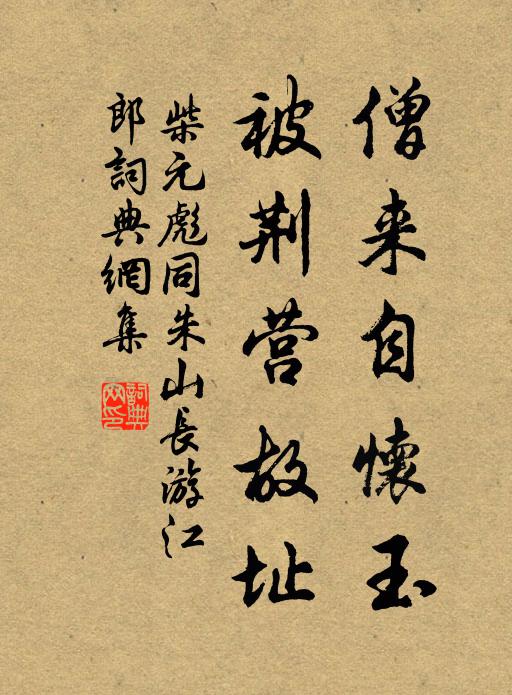 僧来自懷玉
被荆营故址
柴元彪同朱山長游江
郎詞典網集
詞典
网印